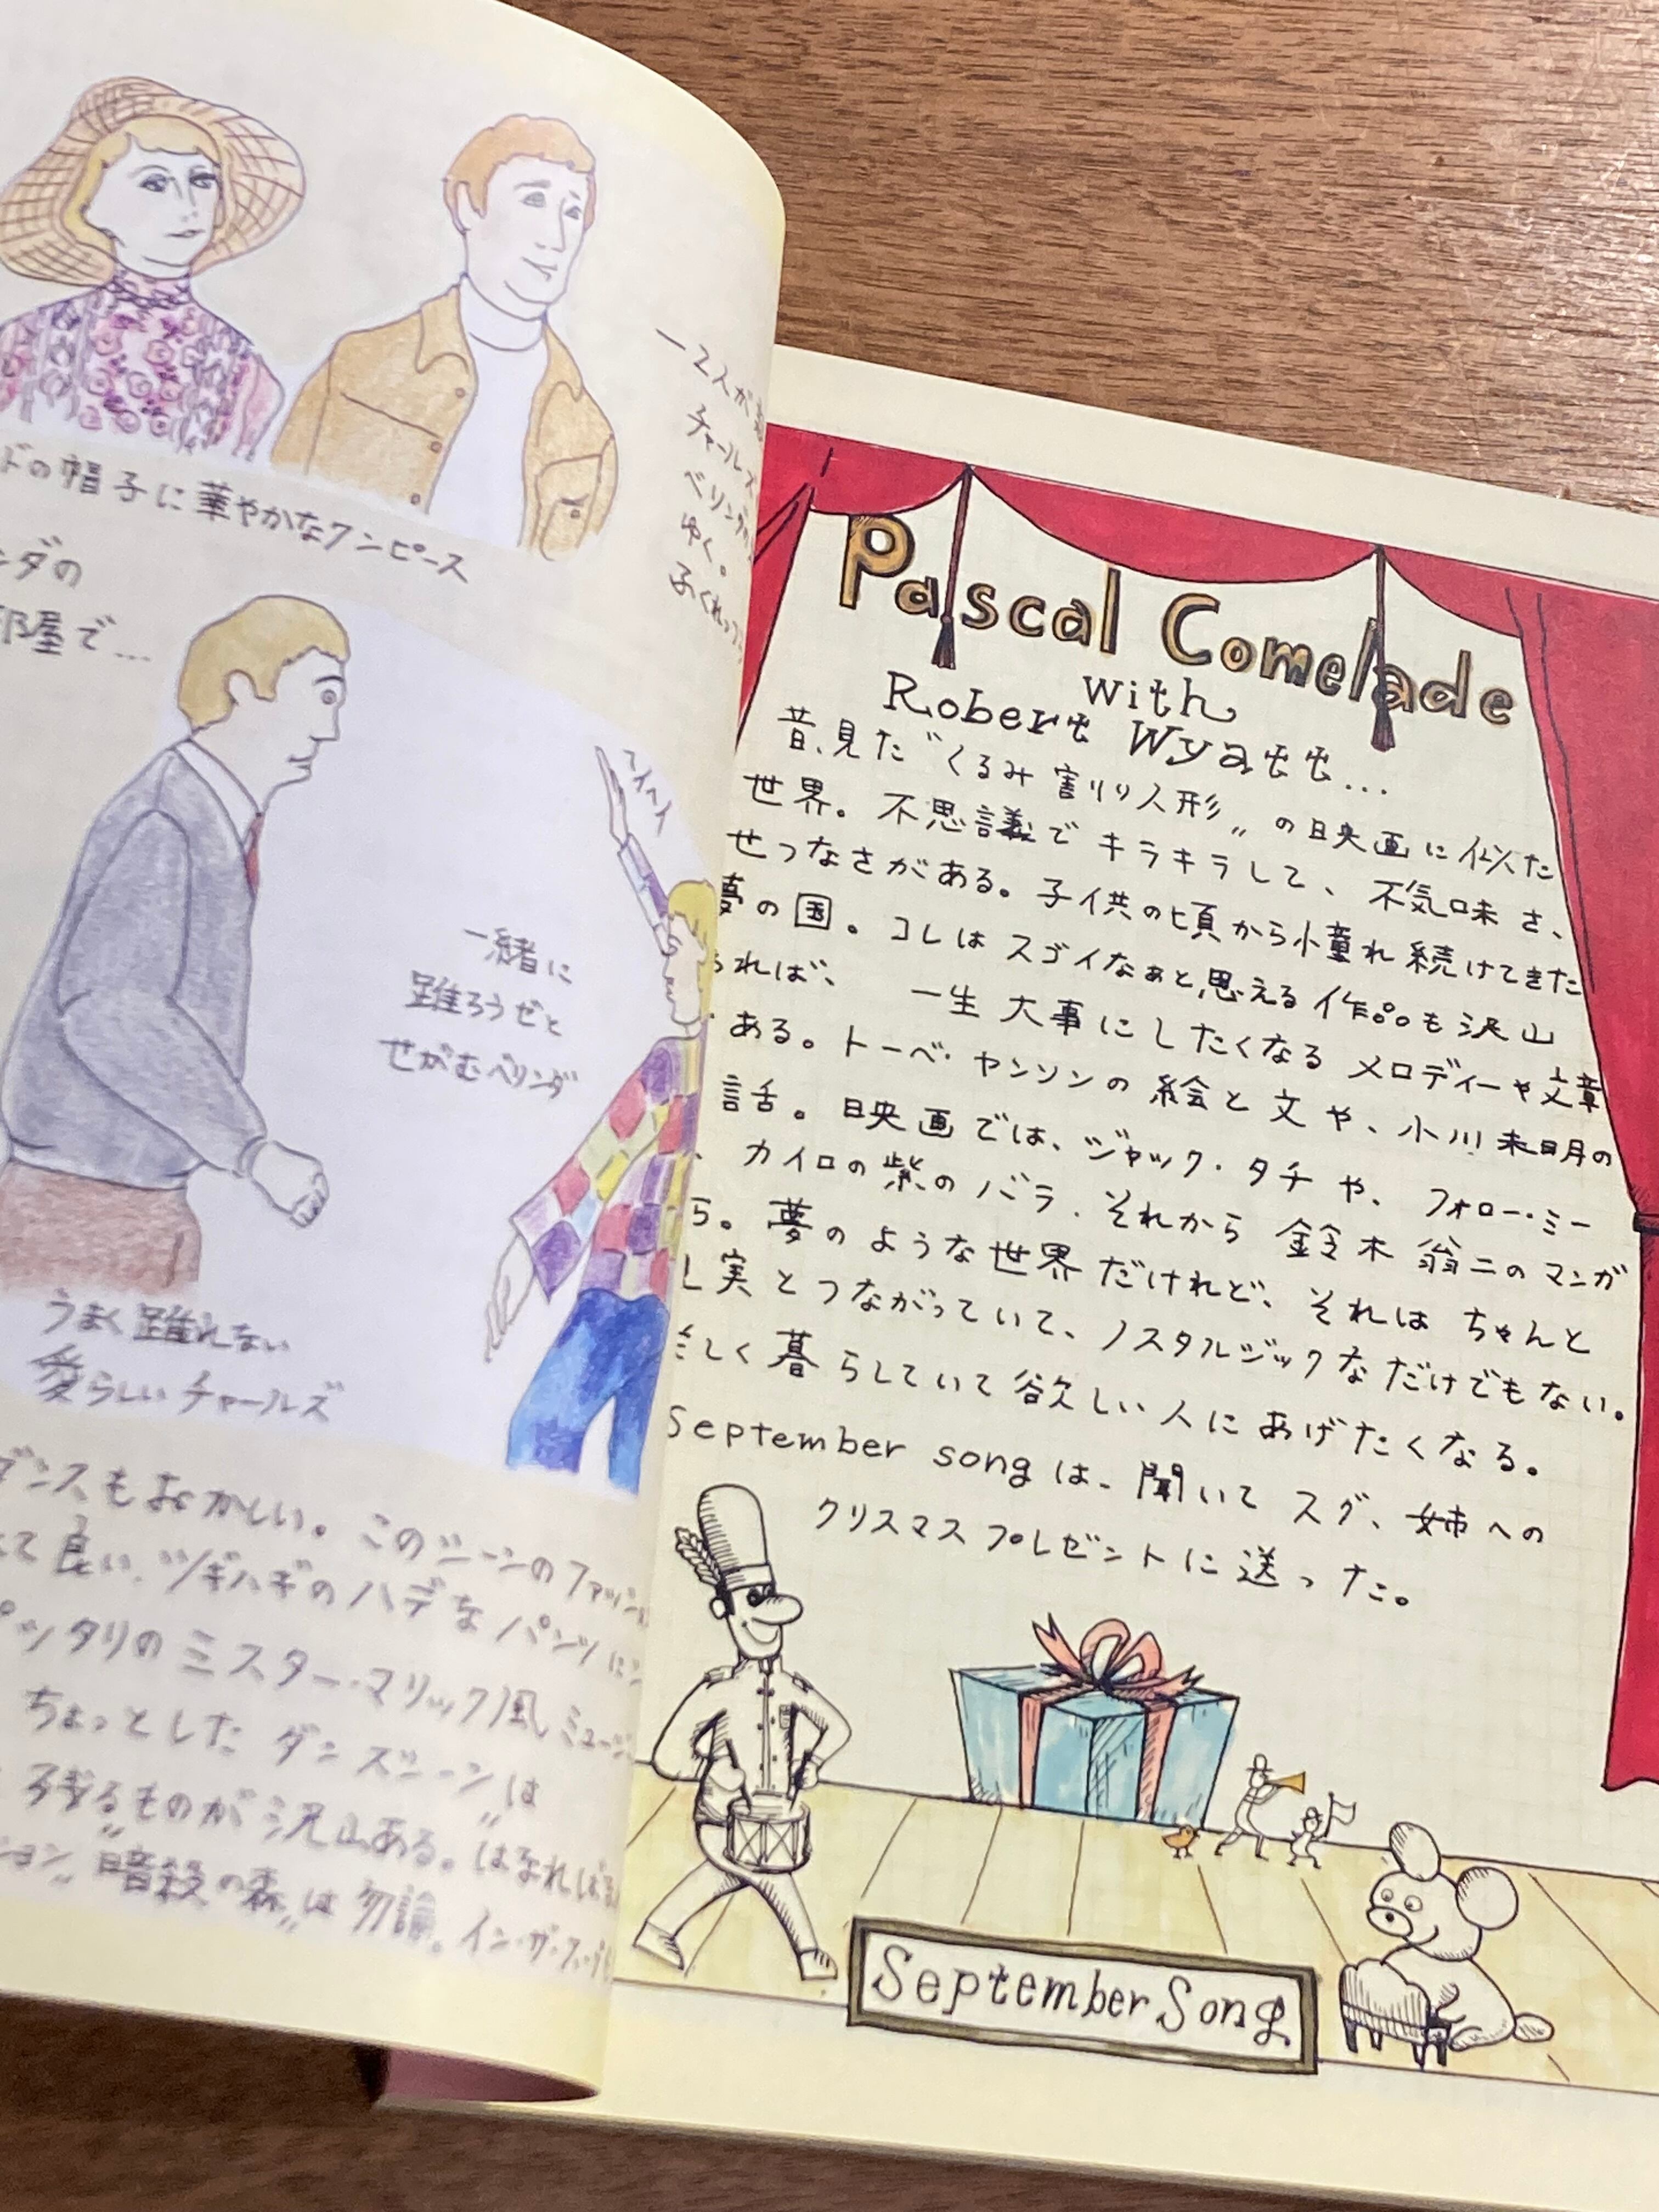 ドの帽子に華やかなワンピース
ンダの
部屋で…
一2人が
チャールズ
ベリンダ
ゆく。
一緒に
踊ろうぜと
せがむベリンダ
うまく踊れない
愛らしいチャールズ
ダンスもおかしい。このシーンのファッション
て良い。ツギハギのハデなパンツに
ピッタリのミスター・マリック風ミュージ
ちょっとしたダンスシーンは
残るものが沢山ある。はなればな
ション"暗殺の森"は勿論。イン・ザ・スープ
Pascal Comelade
with
Robert Wyatt...
昔、見た"くるみ割り人形"の映画に似た
世界。不思議でキラキラして、不気味さ、
せつなさがある。子供の頃から憧れ続けてきた
夢の国。コレはスゴイなぁと思える作品も沢山
あれば、 一生大事にしたくなるメロディーや文章
ある。トーベ・ヤンソンの絵と文や、小川未明の
話。映画では、ジャック・タチや、フォロー・ミー
、カイロの紫のバラ、それから鈴木翁二のマンガ
ら。夢のような世界だけれど、それはちゃんと
実とつながっていて、ノスタルジックなだけでもない。
しく暮らしていて欲しい人にあげたくなる。
September songは、聞いてスグ、姉への
クリスマスプレゼントに送った。
September Song